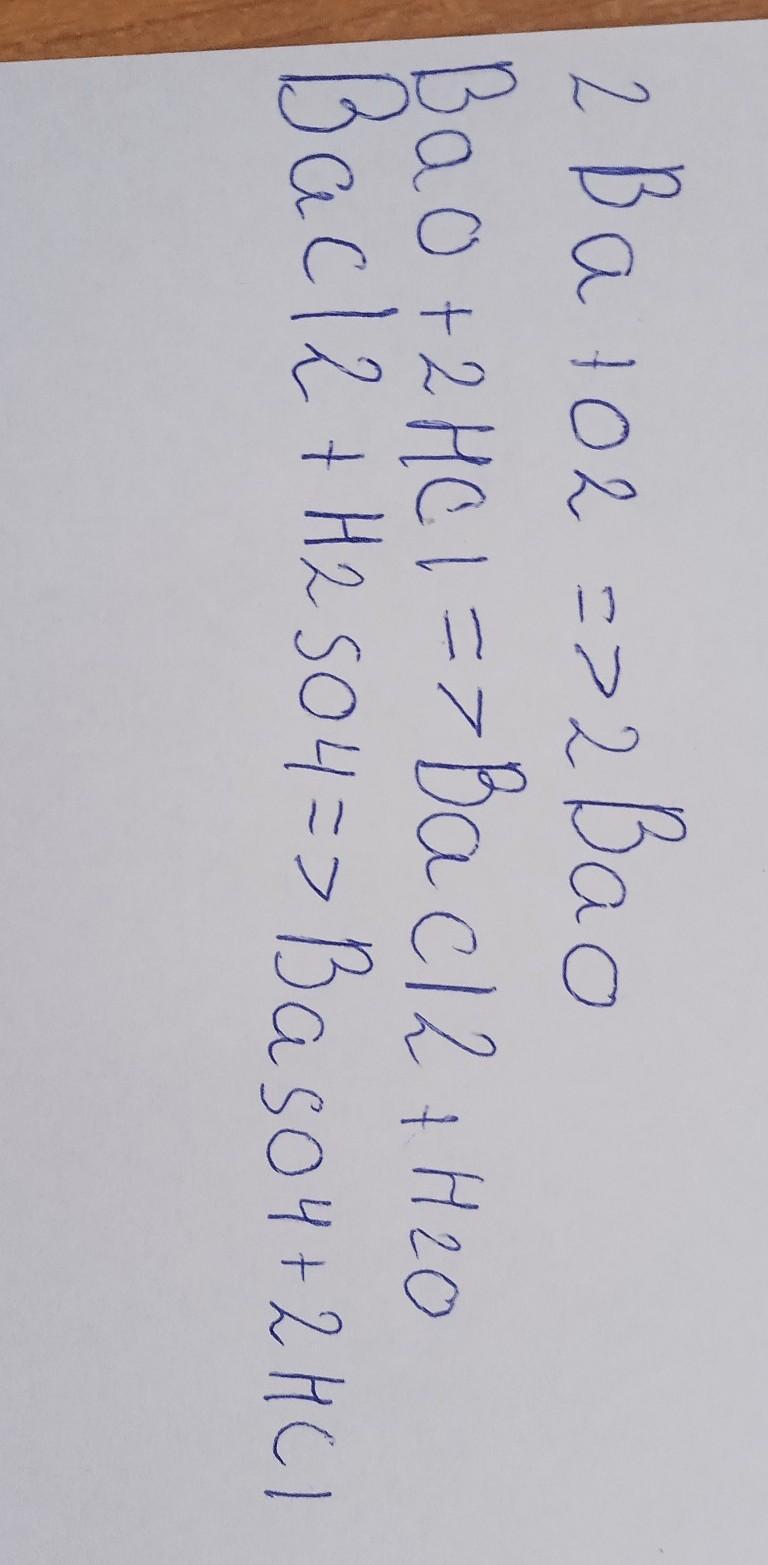 2 Ba + O2 => 2 BaO
BaO + 2HCl => BaCl2 + H2O
BaCl2 + H2SO4 => BaSO4 + 2HCl